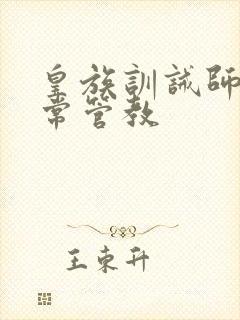 皇族訓誡師
常管教
王東升